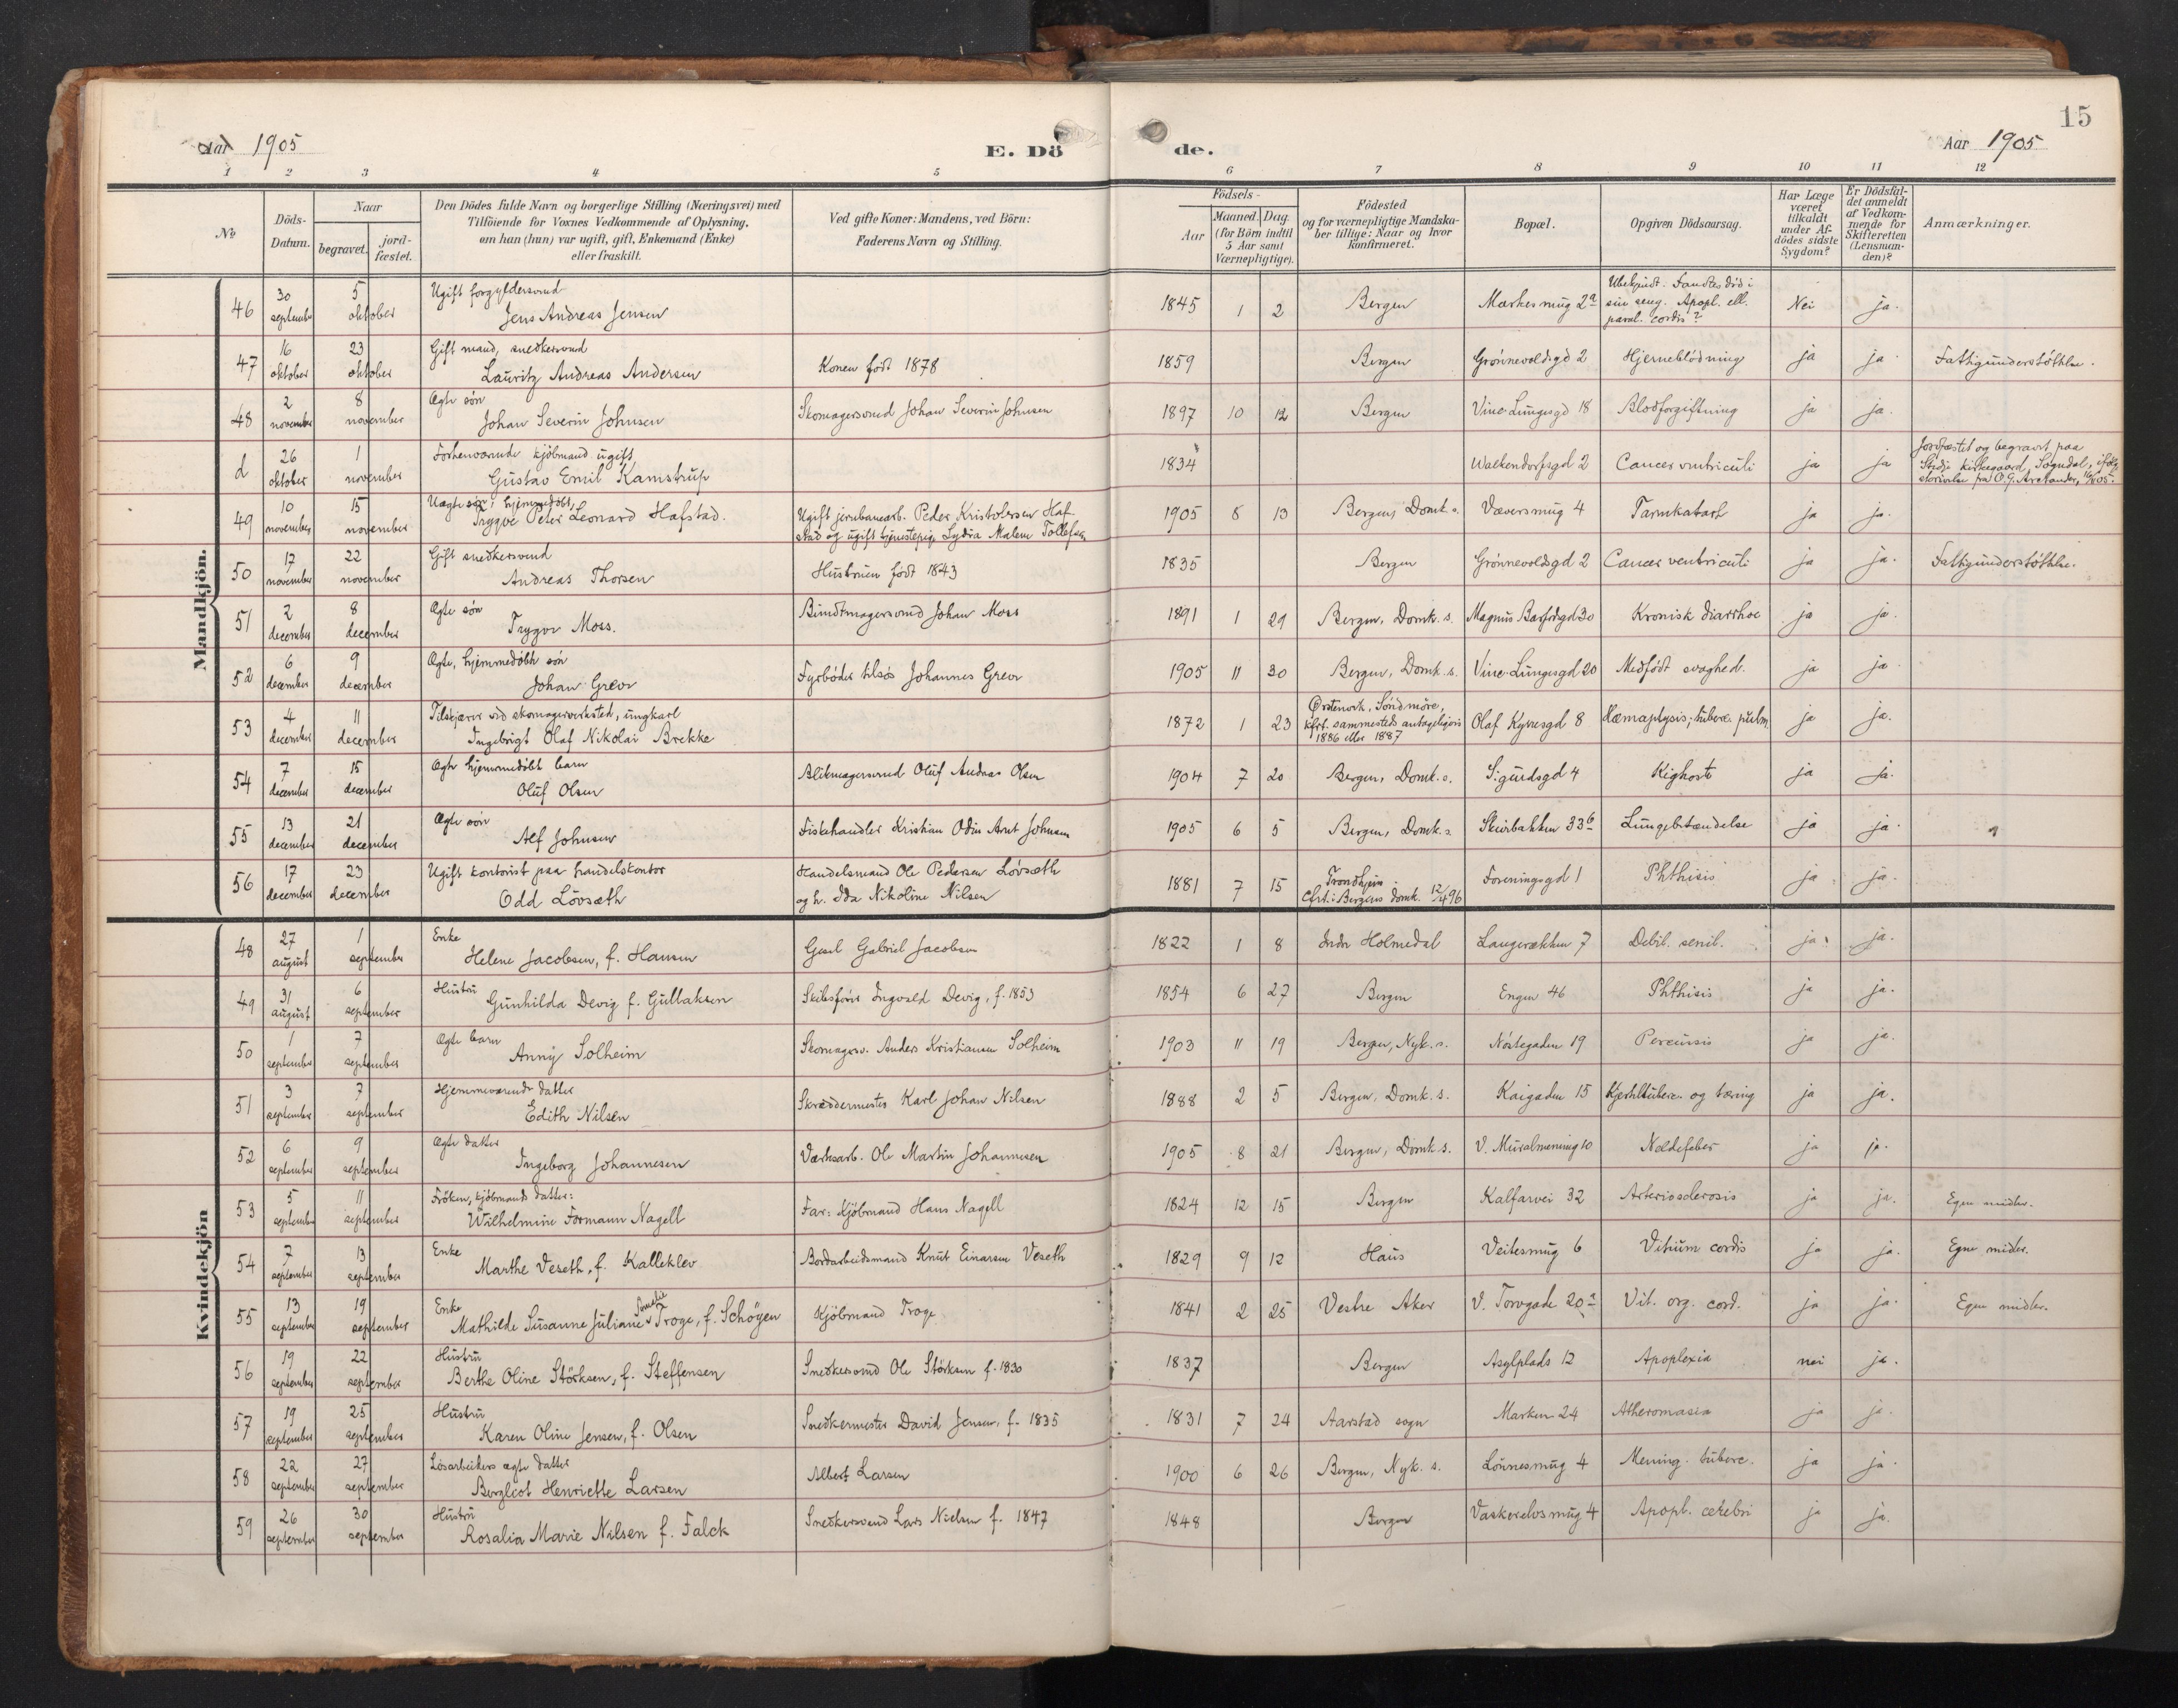 15
Aar 1905
E. Döde.
Aar 1905
1 2 3 4 5 6 7 8 9 10 11 12
No
Döds-Datum.
Naar
begravet.
jord-fæstet.
Den Dödes fulde Navn og borgerlige Stilling (Næringsvei) med
Tilföiende for Voxnes Vedkommende af Oplysning,
om han (hun) var ugift, gift, Enkemand (Enke)
eller fraskilt.
Ved gifte Koner: Mandens, ved Börn:
Faderens Navn og Stilling.
Födsels-
Aar
Maaned. Dag.
(for Börn indtil
5 Aar samt
Værnepligtige).
Födested
og for værnepligtige Mandska-
ber tillige: Naar og hvor
konfirmeret.
Bopæl.
Opgiven Dödsaarsag.
Har Læge
været
tilkaldt
under Af-
dödes sidste
Sygdom?
Er Dödsfal-
det anmeldt
af Vedkom-
mende for
Skifteretten
(Lensman-
den)?
Anmærkninger.
Mandkjön.
46 30 september 5 oktober Ugift forgyldersvend Jens Andreas Jensen 1845 1 2 Bergen Markesmug 2a Ubekjendt. Fandtes död i sin seng. Apopl. ell. paral. cordis? Nei ja.
47 16 oktober 23 oktober Gift mand, snedkersvend Lauritz Andreas Andersen Konen født 1878 1859 Bergen Grønnevoldsgd 2 Hjerneblödning ja ja. Fattigunderstöttelse.
48 2 november 8 november Ægte søn Johan Severin Johnsen Skomagersvend Johan Severin Johnsen 1897 10 12 Bergen Vinc. Lungesgd 18 Blodforgiftning ja ja.
d 26 oktober 1 november Forhenværende kjöbmand ugift Gustav Emil Kamstrup 1834 Walkendorfsgd 2 Cancer ventriculi ja ja Jordfæstet og begravt paa Stedje kirkegaard, Sogndal,
49 10 november 15 november Uægte søn, hjemmedöbt, Trygve Peter Leonard Hafstad. Ugift jernbanearb. Peder Kristofersen Hafstad og ugift tjenestepige Lydia Malene Tollefsen 1905 8 13 Bergen, Domk. s. Væversmug 4 Tarmkatarh ja ja.
50 17 november 22 november Gift snedkersvend Andreas Thorsen Hustruen født 1843 1835 Bergen Grönnevoldsgd 2 Cancer ventriculi ja ja. Fattigunderstöttelse.
51 2 december 8 december Ægte søn Trygve Moss. Bundtmagersvend Johan Moss 1891 1 29 Bergen, Domk. s. Magnus Barfodsgd 30 Kronisk diarrhoe ja ja.
52 6 december 9 december Ægte, hjemmedöbt søn Johan Greve Fyrböder tilsös Johannes Greve 1905 11 30 Bergen, Domk. s. Vinc. Lungesgd 20 Medfödt svaghed. ja ja
53 4 december 11 december Tilskjærer ved skomagerverksted, ungkarl Ingebrigt Olaf Nikolai Brekke 1872 1 23 Ørstenvik, Söndmöre, kfrt. sammesteds antageligvis 1886 eller 1887 Olaf Kyrresgd 8 Hæmaptysis; tuberc. pulm. ja ja.
54 7 december 15 december Ægte hjemmedöbt barn Oluf Olsen Blikmagersvend Oluf Andreas Olsen 1904 7 20 Bergen, Domk. s. Sigurdsgd 4 Kighoste ja ja.
55 13 december 21 december Ægte søn Alf Johnsen Fiskehandler Kristian Odin Arnt Johnsen 1905 6 5 Bergen, Domk. s Skivebakken 33b Lungebetændelse ja ja.
56 17 december 23 december Ugift kontorist paa handelskontor Odd Lövsæth Handelsmand Ole Pedersen Lövsæth og h. Ida Nikoline Nilsen 1881 7 15 Trondhjem. Cfrt. i Bergens domk. 12/4 96 Foreningsgd 1 Phthisis ja ja.
Kvindekjön
48 27 august 1 september Enke Helene Jacobsen, f. Hansen Gabriel Jacobsen 1822 1 8 Indre Holmedal Langerækken 7 Debil. senil. ja ja.
49 31 august 6 september Hustru Gunhilda Devig f. Gullaksen Skibsförer Ingvald Devig, f. 1853 1854 6 27 Bergen Engen 46 Phthisis ja ja.
50 1 september 7 september Ægte barn Anny Solheim Skomagersv. Anders Kristiansen Solheim 1903 11 19 Bergen, Nyk. s. Nöstegaden 19 Percussis ja ja.
51 3 september 7 september Hjemmeværende datter Edith Nilsen Skræddermester Karl Johan Nilsen 1888 2 5 Bergen, Domk. s. Kaigaden 15 Kjerteltuberc. og tæring ja ja.
52 6 september 9 september Ægte datter Ingeborg Johannesen Værksarb. Ole Martin Johannesen 1905 8 21 Bergen, Domk s. V. Muralmening 10 Neldefeber ja ja.
53 5 september 11 september Fröken, kjöbmands datter: Wilhelmine Formann Nagell Far: Kjöbmand Hans Nagell 1824 12 15 Bergen Kalfarvei 32 Arteriosclerosis ja ja. Egne midler.
54 7 september 13 september Enke Marthe Veseth, f. Kalleklev Bordarbeidsmand Knut Einarsen Veseth 1829 9 12 Haus Veitesmug 6 Vitium cordis ja ja. Egne midler.
55 13 september 19 september Enke Mathilde Susanne Juliane Amalie Troge, f. Schöyen Kjöbmand Troge 1841 2 25 Vestre Aker V. Torvgade 20a Vit. org. cord. ja ja. Egne midler.
56 19 september 22 september Hustru Berthe Oline Störksen, f. Steffensen Snedkersvend Ole Störksen f. 1830 1837 Bergen Asylplads 12 Apoplexia nei ja.
57 19 september 25 september Hustru Karen Oline Jensen, f. Olsen Snedkermester David Jensen, f. 1835 1831 7 24 Aarstad sogn Marken 24 Atheromasia ja ja.
58 22 september 27 september Lösarbeiders ægte datter Bergliot Henriette Larsen Albert Larsen 1900 6 26 Bergen, Nyk. s. Lönnesmug 4 Mening. tuberc. ja ja.
59 26 september 30 september Hustru Rosalia Marie Nilsen f. Falck Snedkersvend Lars Nielsen f. 1847 1848 Bergen Vaskerelvsmug 4 Apopl. cerebri ja ja.